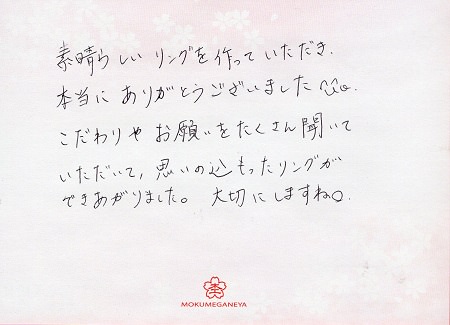 素晴らしい リングを作っていただき.
本当に ありがとうございました
こだわりや お願いをたくさん聞いて
いただいて, 思いの込もったリングが
できあがりました。 大切にしますね
MOKUMEGANEYA